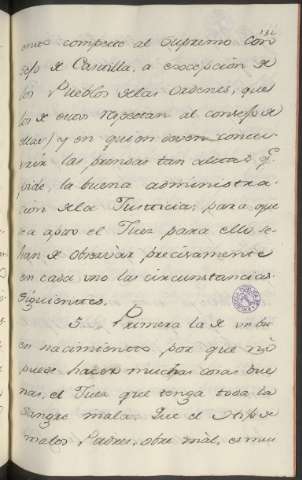 compete al Supremo Con
sejo de Castilla, a excepción de
los Pueblos delas Ordenes, que
los de estos respetan al consejo de
ellas) y en quien deven concu-
rrir las prendas tan altas q.
pide, la buena administra-
cion dela Justicia; para que
sea apto el Juez para ello, se
han de observar precisamente
en cada uno las circunstancias
siguientes.
5. Primera la de un bu
en nacimiento por que no
puede hacer muchas cosas bue
nas, el Juez que tenga toda la
sangre mala. Que el Hijo de
malos Padres, obre mál, es mui